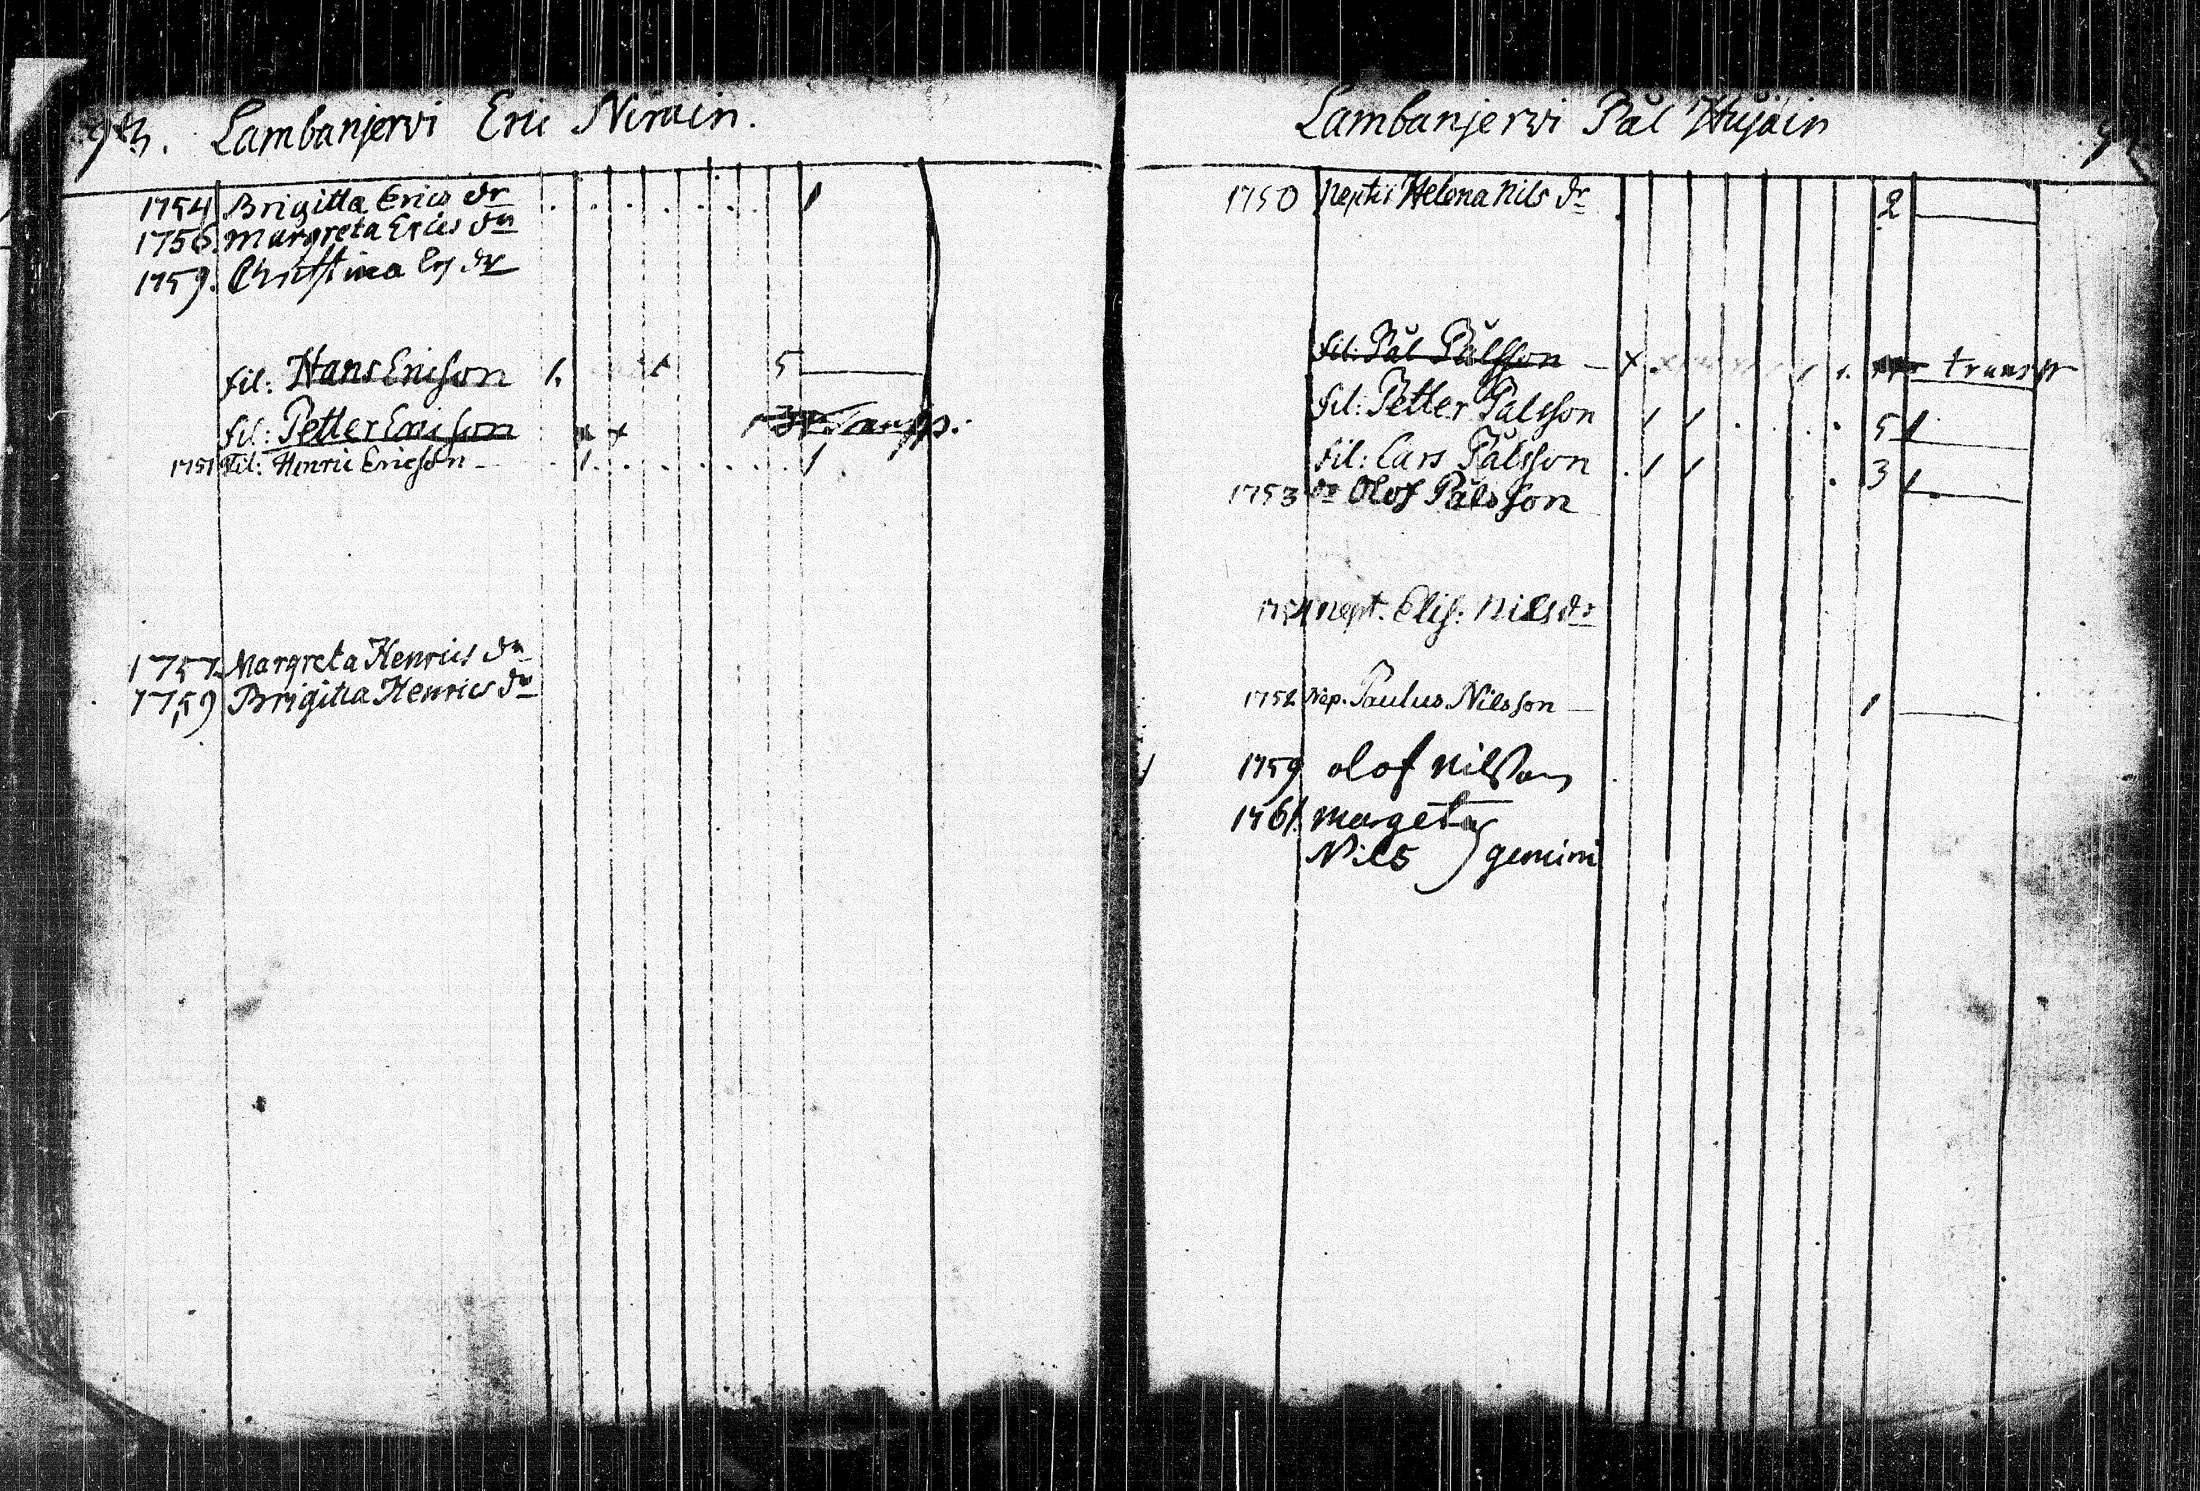 Lambanjervi Eric Nirain.
1754 Brigitta Erics dr 1
1756. Margreta Erics dr
1759. Christina Er dr
fil: Hans Ericson 1. 5
fil: Petter Ericson x x
1751 Fil: Henric Ericson 1 1
1757. Margreta Henrics dr
1759 Brigitta Henrics dr
Lambanjerwi Pål Hujain
1750 Neptis Helena Nils dr 2
fil: Pål Pålsson x transp
fil: Petter Pålsson 1 1 5 1
fil: Lars Pålsson 1 1 3 1
1753 Olof Pålsson
1754 nept. Elis: Nils dr
1752 Nep. Paulus Nilsson 1
1759 olof Nilsson
1761. Margeta
Nils } gemini